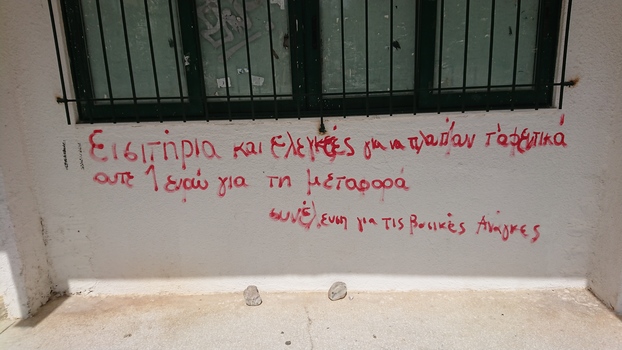 Εισιτήρια και ελεγκτές για να πλαπάν τ'αφεντικά
ουτε 1 ευρώ για τη μεταφορά
συνέλευση για τις βασικές Ανάγκες